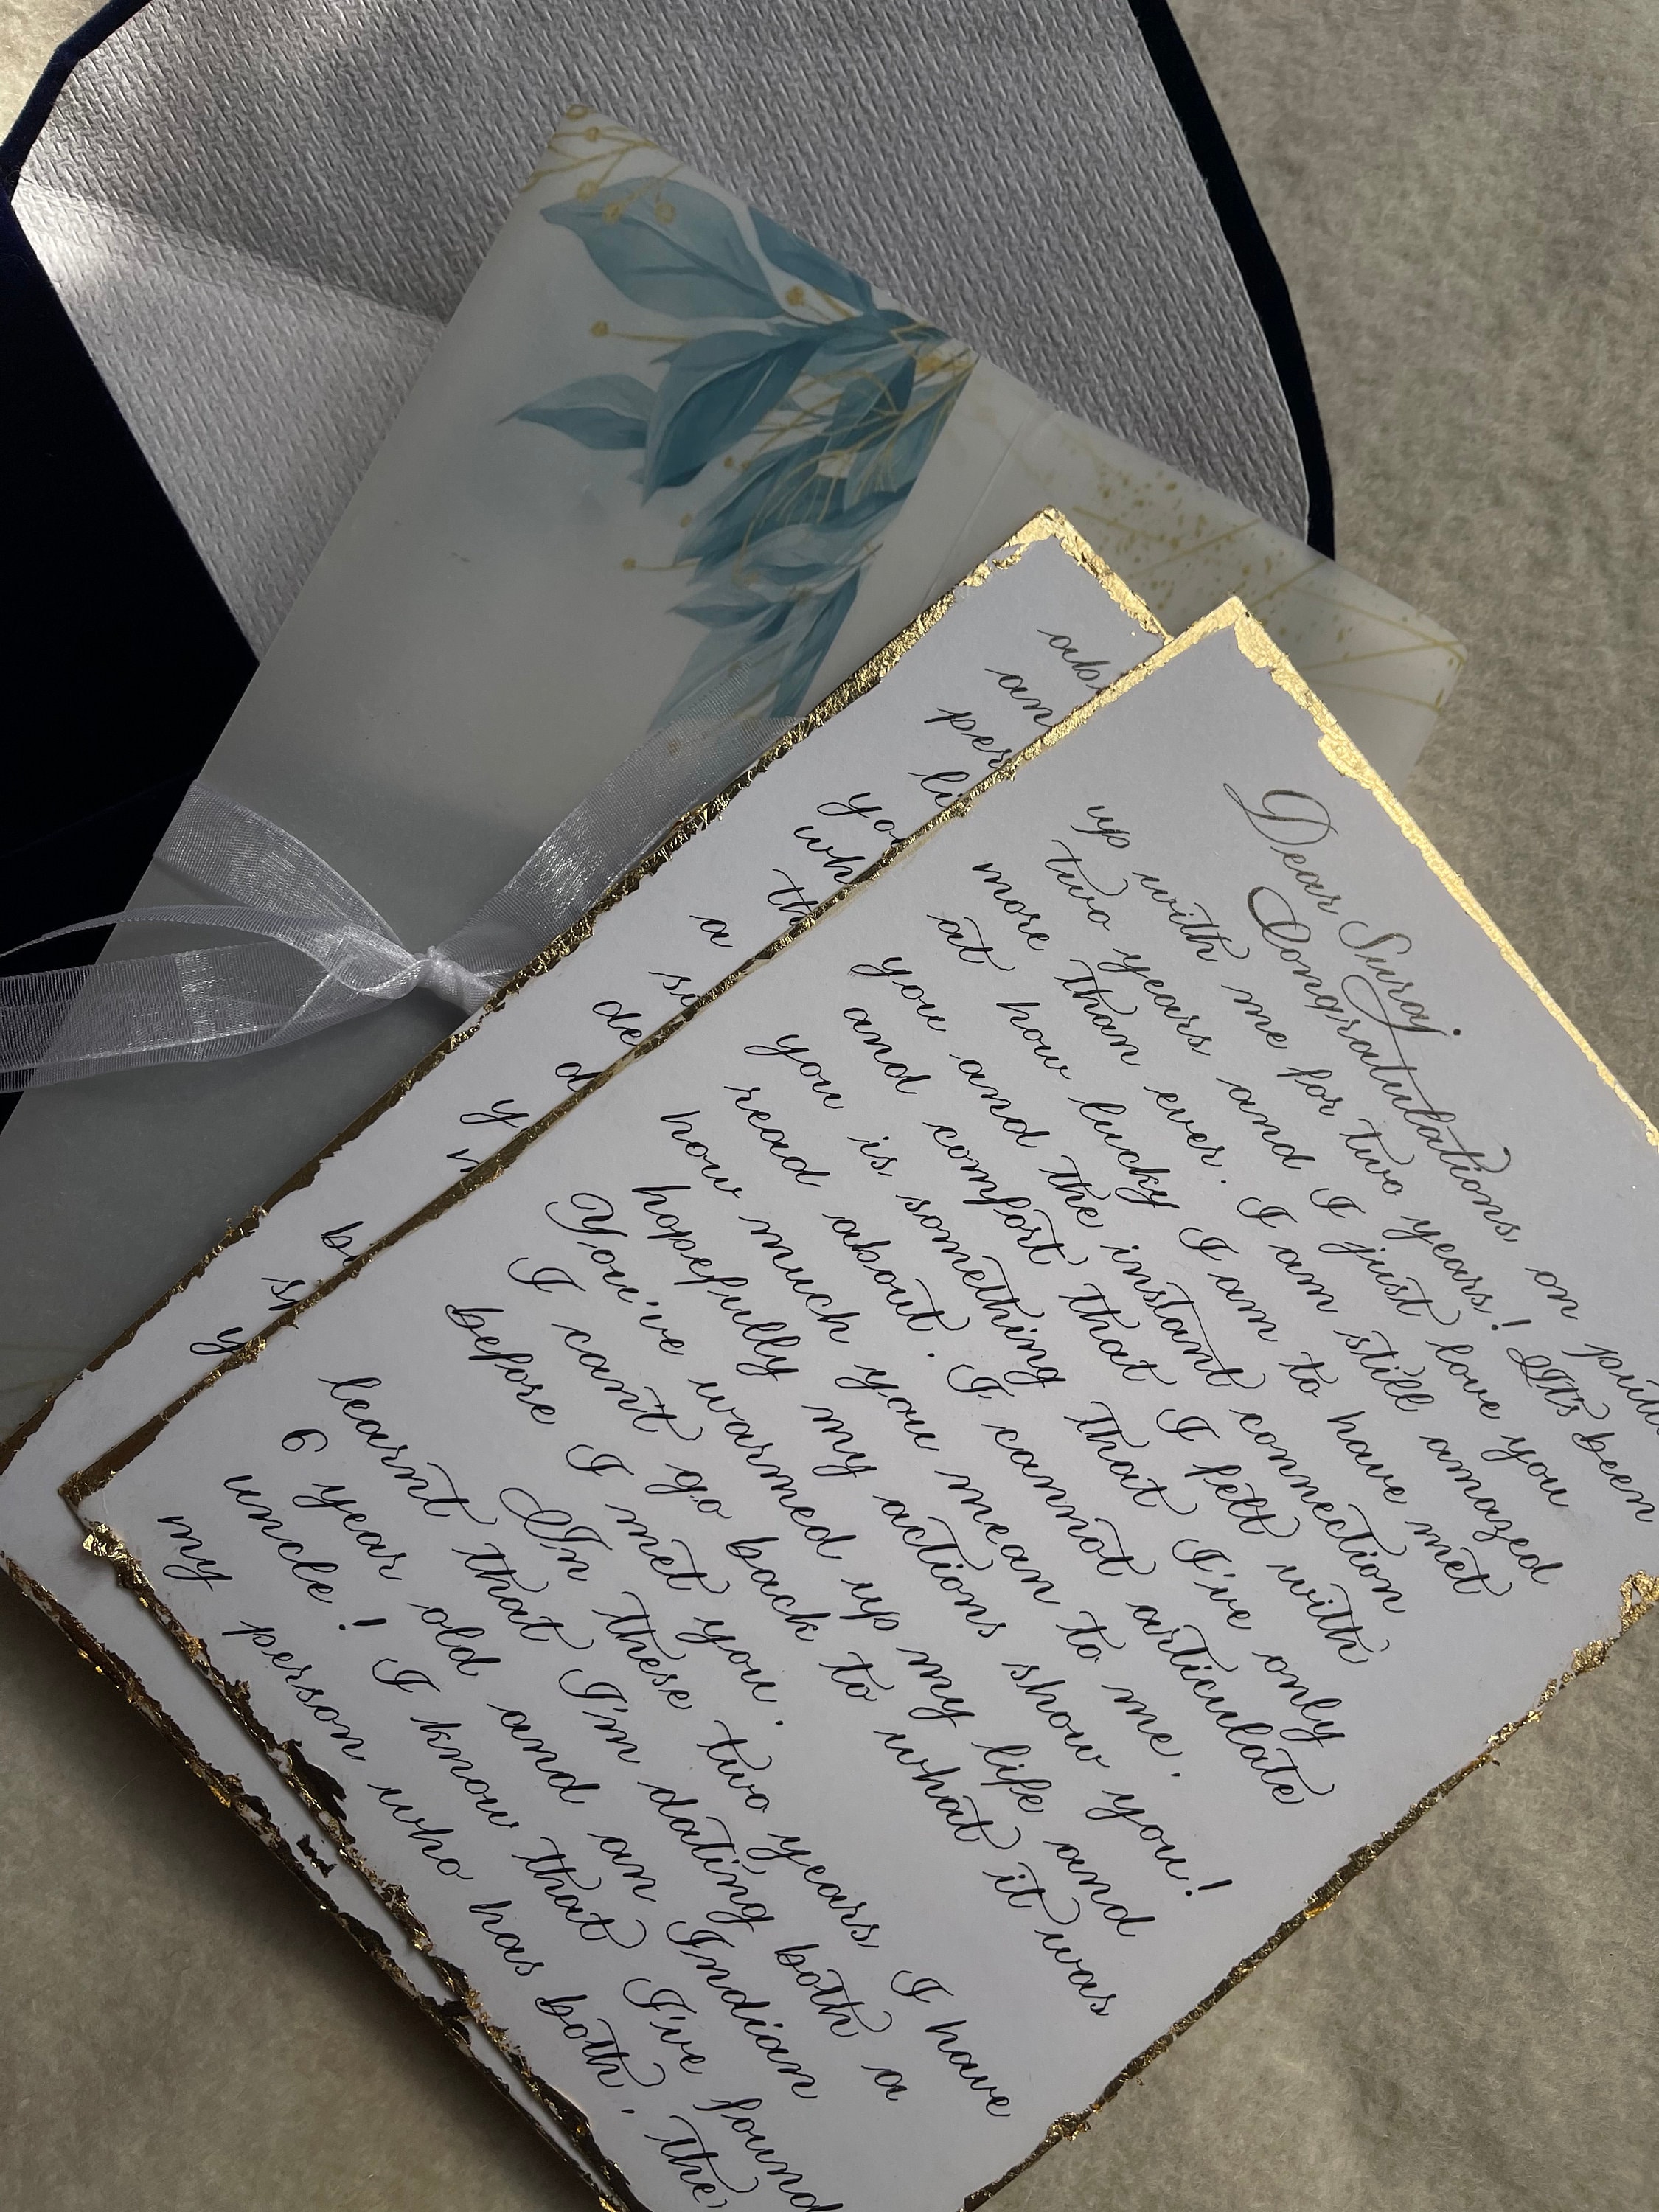 Dear Suraj,
Congratulations on
up with me for two years! It's been
two years and I just love you
more than ever. I am still amazed
at how lucky I am to have met
you and the instant connection
and comfort that I felt with
you is something that I've only
read about. I cannot articulate
how much you mean to me,
hopefully my actions show you!
You've warmed up my life and
I can't go back to what it was
before I met you.
In these two years I have
learnt that I'm dating both a
6 year old and an Indian
uncle! I know that I've found
my person who has both, the
a